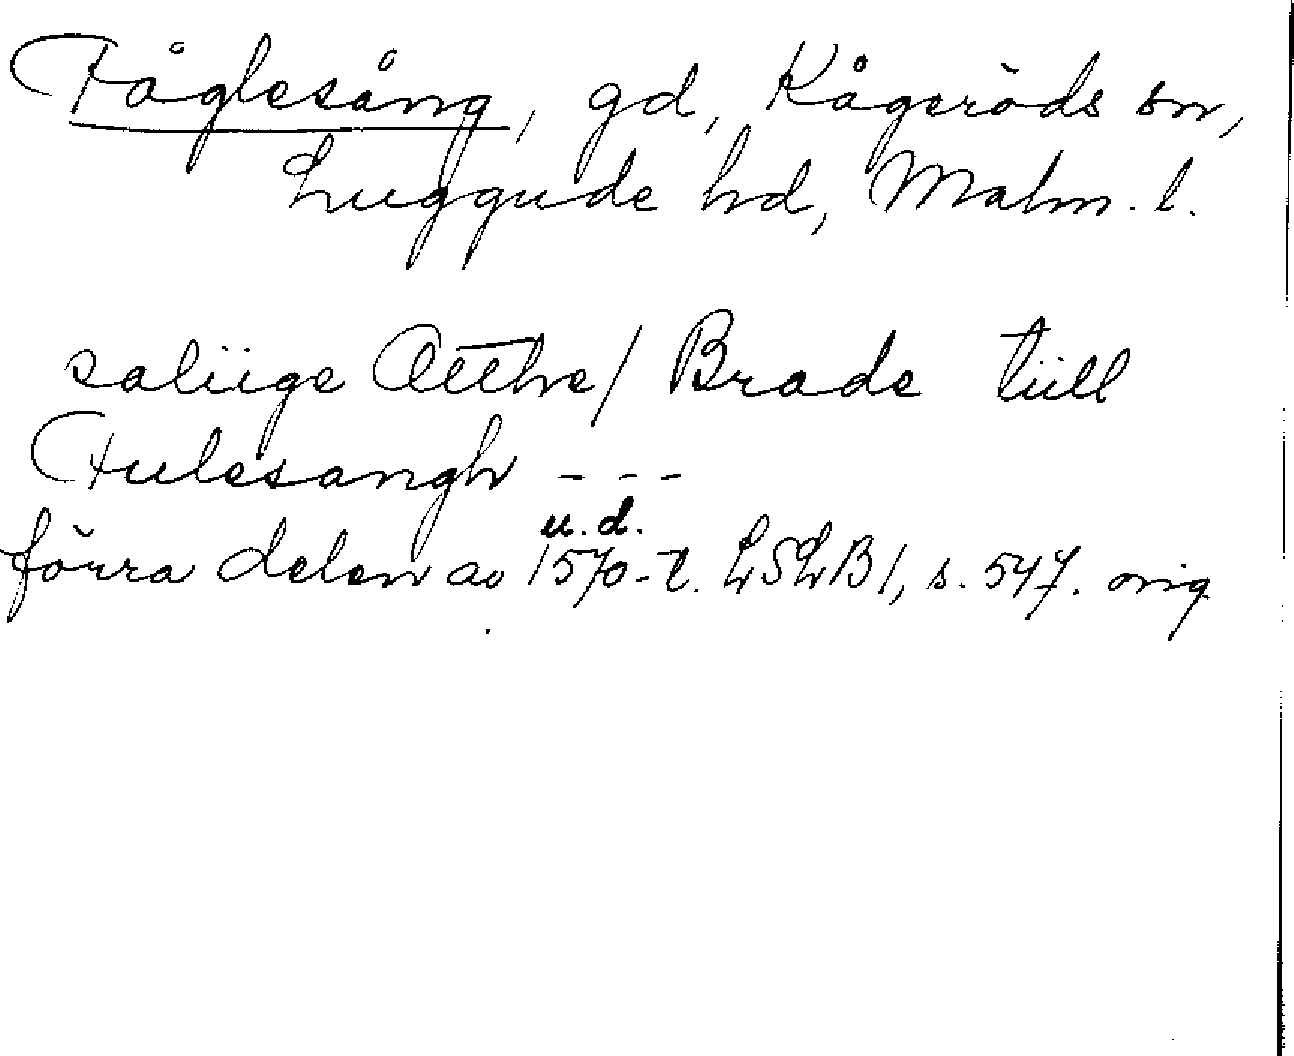 Fåglesång, gd, Kågeröds sn,
Luggude hd, Malm. l.
saliige Otthe/ Brade tiill
Fulesangh - - -
u. d.
förra delen av 1570-t. LSLB1, s. 547. orig